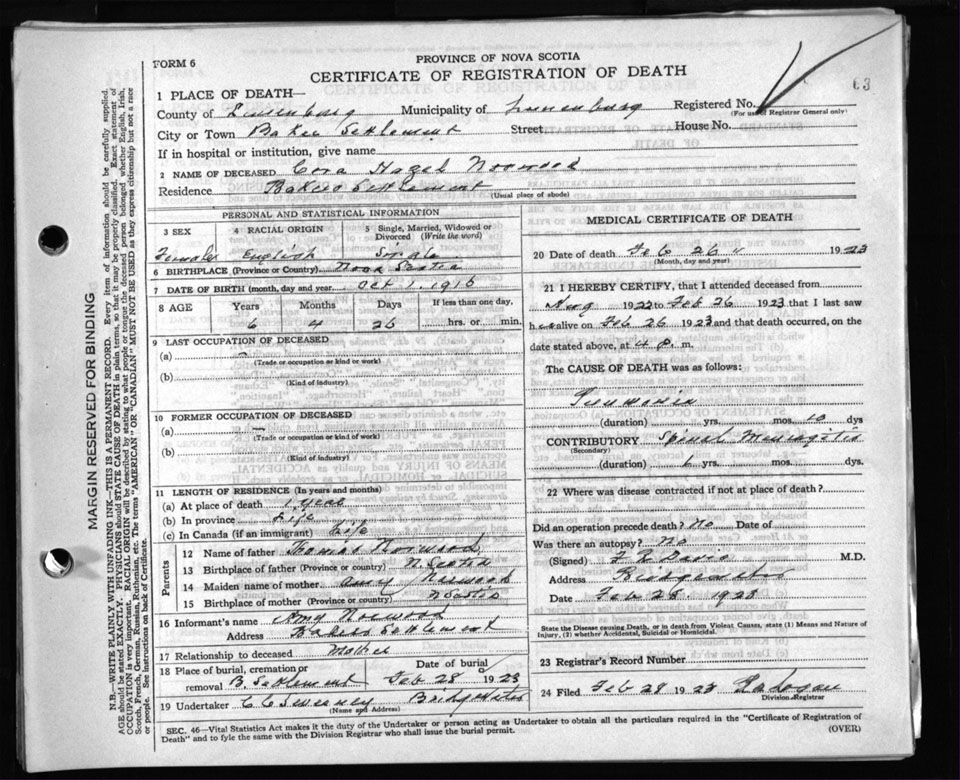 FORM 6
PROVINCE OF NOVA SCOTIA
CERTIFICATE OF REGISTRATION OF DEATH
63
1 PLACE OF DEATH—
County of Lunenburg Municipality of Lunenburg Registered No.
(For use of Registrar General only)
City or Town Baker Settlement Street House No.
If in hospital or institution, give name
2 NAME OF DECEASED Cora Hazel Norwood
Residence Bakers Settlement
(Usual place of abode)
PERSONAL AND STATISTICAL INFORMATION
3 SEX 4 RACIAL ORIGIN 5 Single, Married, Widowed or Divorced (Write the word)
Female English Single
6 BIRTHPLACE (Province or Country) Nova Scotia
7 DATE OF BIRTH (month, day and year) Oct 1, 1916
8 AGE Years Months Days If less than one day,
6 4 26 hrs. or min.
9 LAST OCCUPATION OF DECEASED
(a) –
(Trade or occupation or kind or work)
(b)
(Kind of industry)
10 FORMER OCCUPATION OF DECEASED
(a) –
(Trade or occupation or kind of work)
(b)
(Kind of industry)
11 LENGTH OF RESIDENCE (In years and months)
(a) At place of death 1 year
(b) In province Life
(c) In Canada (if an immigrant) Life
Parents
12 Name of father Norwood
13 Birthplace of father (Province or country) N. Scotia
14 Maiden name of mother Amy Norwood
15 Birthplace of mother (Province or country) N Scotia
16 Informant's name Amy Norwood
Address Bakers Settlement
17 Relationship to deceased Mother
18 Place of burial, cremation or removal B. Settlement Date of burial Feb 28 1923
19 Undertaker C C Sweeney Bridgewater
(Name and Address)
MEDICAL CERTIFICATE OF DEATH
20 Date of death Feb 26 1923
(Month, day and year)
21 I HEREBY CERTIFY, that I attended deceased from
Aug 1922 to Feb 26 1923 that I last saw
her alive on Feb 26 1923 and that death occurred, on the
date stated above, at 4 P. m.
The CAUSE OF DEATH was as follows:
Pneumonia
(duration) yrs. mos. 10 dys
CONTRIBUTORY Spinal Meningitis
(Secondary)
(duration) yrs. mos. dys.
22 Where was disease contracted if not at place of death?
Did an operation precede death? No Date of
Was there an autopsy? No
(Signed) F R Davis M.D.
Address Bridgewater
Date Feb 28 1923
State the Disease causing Death, or in death from Violent Causes, state (1) Means and Nature of
Injury, (2) whether Accidental, Suicidal or Homicidal.
23 Registrar's Record Number
24 Filed Feb 28 1923
Division Registrar
SEC. 46—Vital Statistics Act makes it the duty of the Undertaker or person acting as Undertaker to obtain all the particulars required in the "Certificate of Registration of
Death" and to fyle the same with the Division Registrar who shall issue the burial permit.
(OVER)
MARGIN RESERVED FOR BINDING
N.B.—WRITE PLAINLY WITH UNFADING INK—THIS IS A PERMANENT RECORD. Every item of information should be carefully supplied.
AGE should be stated EXACTLY. PHYSICIANS should STATE CAUSE OF DEATH in plain terms, so that it may be properly classified. Exact statement of
OCCUPATION is very important. RACIAL ORIGIN will be described by stating to what people or tongue the deceased person belonged whether English, Irish,
Scotch, French, German, Russian, Ruthenian, etc. The terms "AMERICAN" or "CANADIAN" MUST NOT BE USED as they express citizenship but not a race
or people. See instructions on back of Certificate.